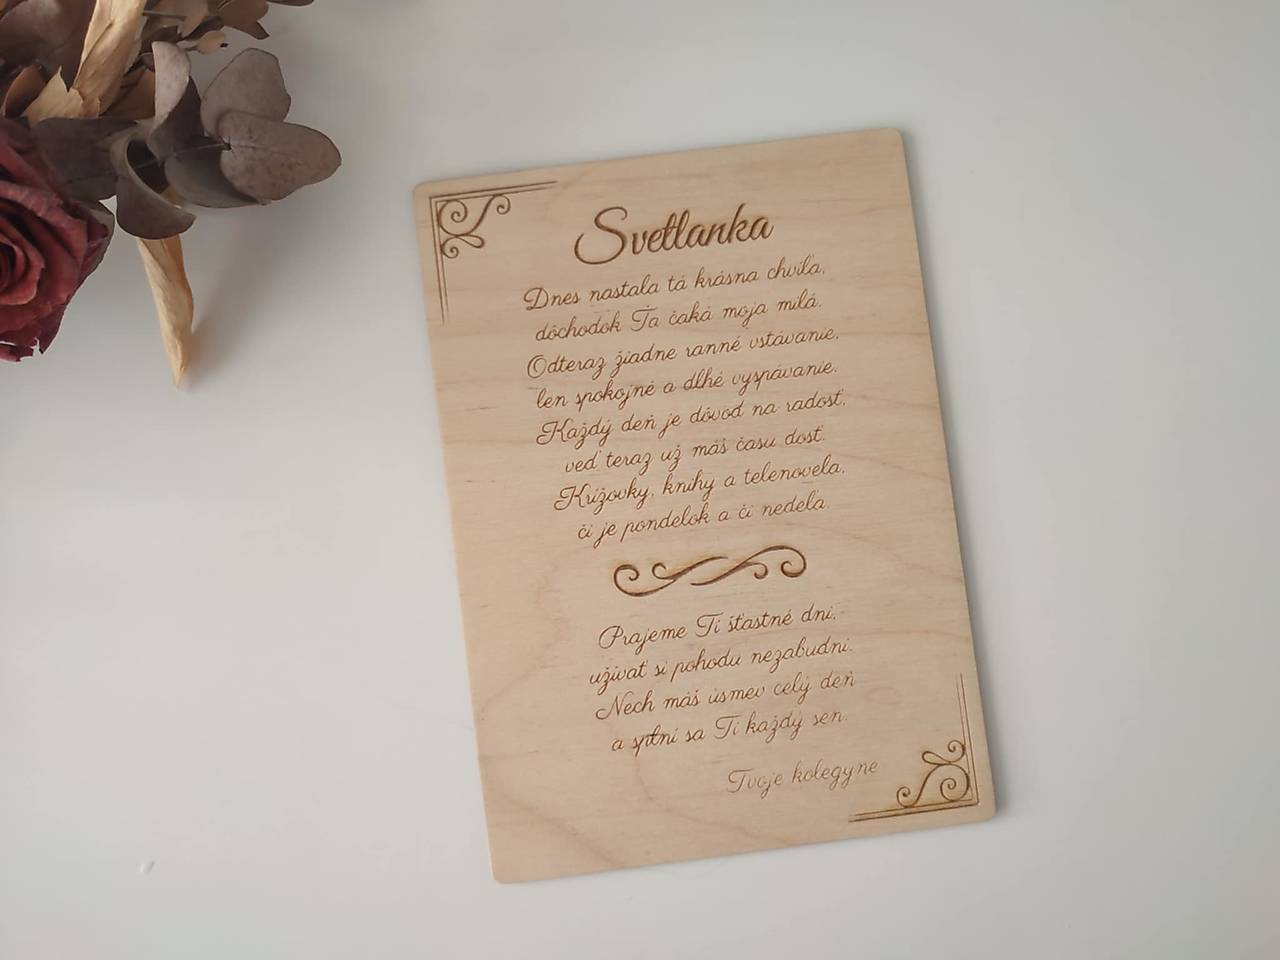 Svetlanka
Dnes nastala tá krásna chvíľa,
dôchodok Ťa čaká moja milá.
Odteraz žiadne ranné vstávanie,
len spokojné a dlhé vyspávanie.
Každý deň je dôvod na radosť,
veď teraz už máš času dosť.
Krížovky, knihy a telenovela,
či je pondelok a či nedeľa.
Prajeme Ti šťastné dni,
užívať si pohodu nezabudni.
Nech máš úsmev celý deň
a splní sa Ti každý sen.
Tvoje kolegyne